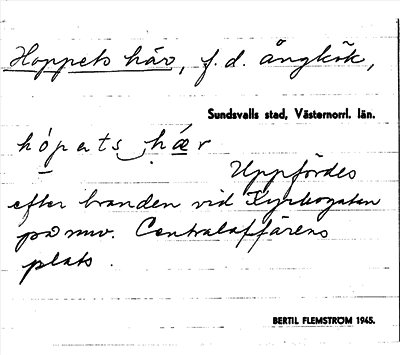 Hoppets här, f. d. ångkök,
Sundsvalls stad, Västernorrl. län.
hópets hær
Uppfördes
efter branden vid Kyrkogatan
på nuv. Centralaffärens
plats.
BERTIL FLEMSTRÖM 1945.